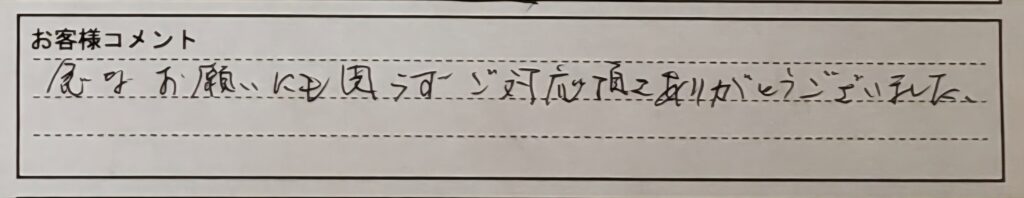 お客様コメント
急なお願いにも関らずご対応頂きありがとうございました。